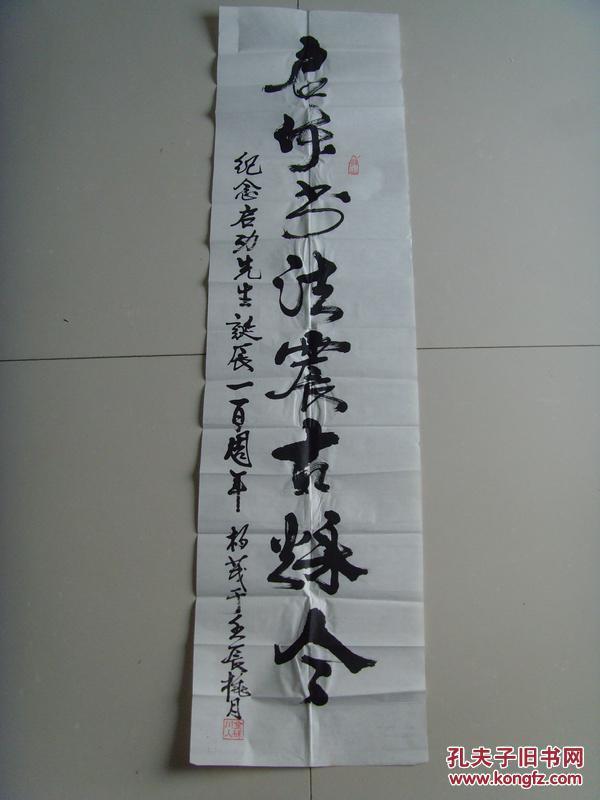 启体书法震古烁今
纪念启功先生誕辰一百周年 杨茂于壬辰桃月
孔夫子旧书网
www.kongfz.com